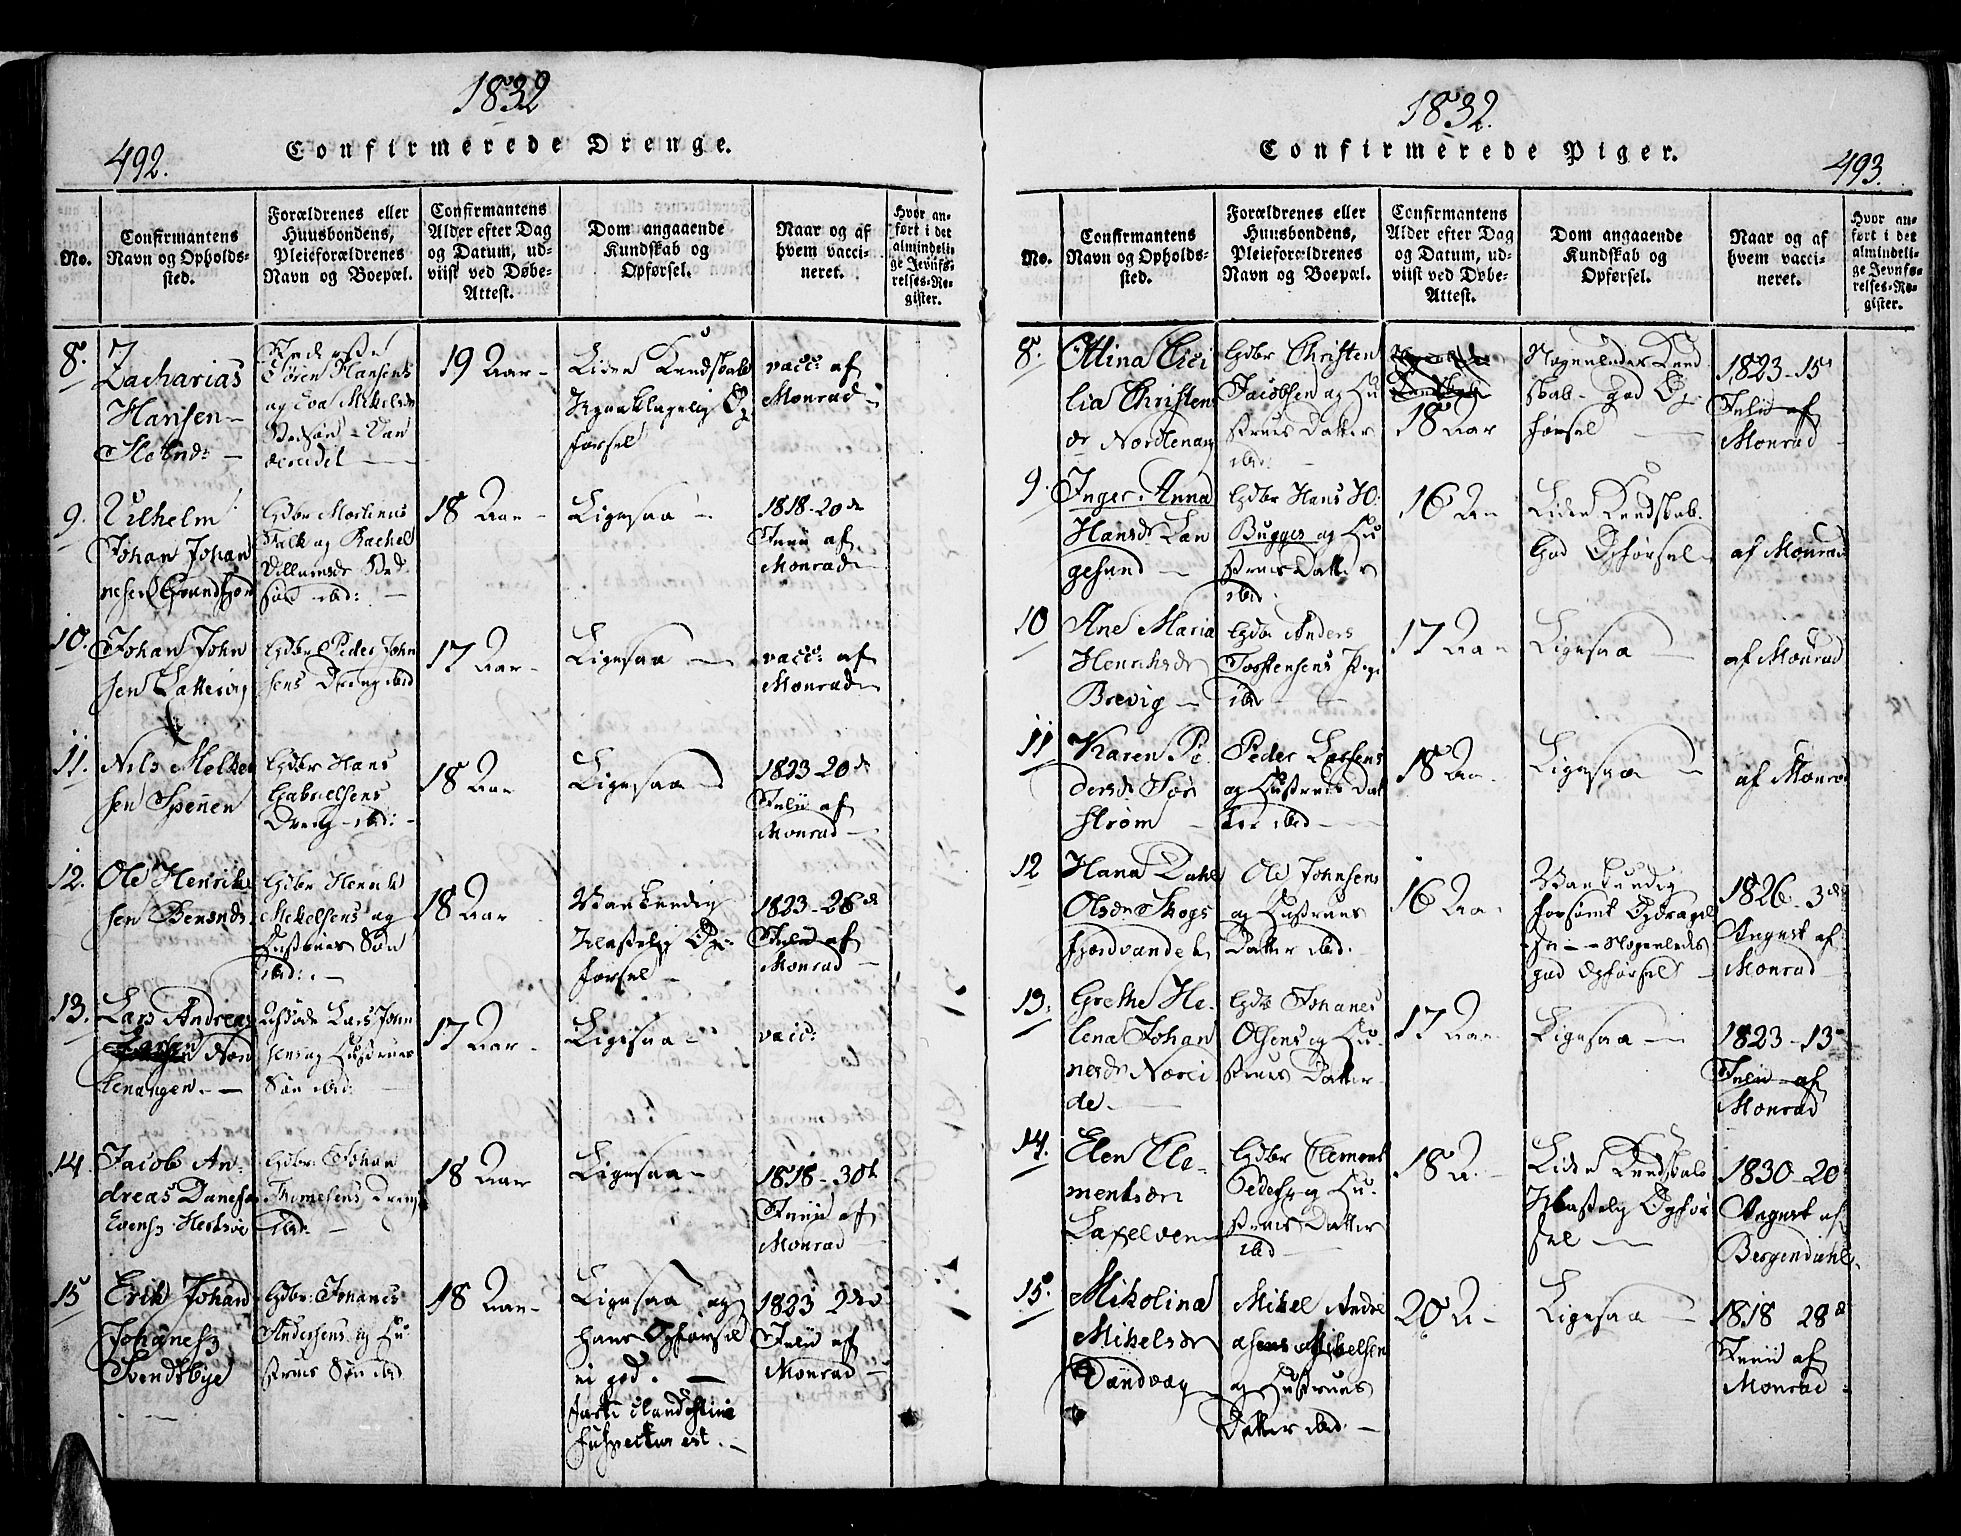 1832
492.
Confirmerede Drenge.
No.
Confirmantens
Navn og Opholds-
sted.
Forældrenes eller
Huusbondens,
Pleieforældrenes
Navn og Boepæl.
Confirmantens
Alder efter Dag
og Datum, ud-
viist ved Døbe-
Attest.
Dom angaaende
Kundskab og
Opførsel.
Naar og af
hvem vacci-
neret.
Hvor an-
ført i det
almindeli-
ge Jevnfø-
relses-Re-
gister.
8.
Zacharias
Hansen
Søren Hansens
og Eva Mikelsdr
19 Aar
Liden Kundskab
Upaaklagelig Op
førsel
vacc: af
Monrad
9.
Vilhelm
Johan Johan
nesen Grundfjord
Gdbr Mortinus
Falk og Rachel
ibid:
18 Aar
Ligesaa
1818-20de
Junii af
Monrad
10.
Johan John
sen Lattervig
Gdbr Peder John
sens Dreng ibid
17 Aar
Ligesaa
vacc: af
Monrad
11.
Nils Mekel
sen Spenen
Gdbr Hans
Gabrielsens
Dreng ibd:
18 Aar
Ligesaa
1823-20de
Julii af
Monrad
12.
Ole Henrik
sen
Gdbr Henrik
Mekelsens og
Hustrues Søn
ibid:
18 Aar
Vankundig
Ulastelig Op-
førsel
1823-26de
Julii af
Monrad
13.
Lars Andreas
Larsen Nor
tenangen
Lars John
sens og Hustrues
Søn ibid:
17 Aar
Ligesaa
vacc:
14.
Jacob An-
dreas
Gdbr: Johan
Dreng
ibid:
18 Aar
Ligesaa
1818-30te
Junii af
Monrad
15
Erik Johan
Johanes:
Svendsbye
Gdbr: Johanes
Andersens og Hu
strues Søn ibid
18 Aar
Ligesaa og
hans Opførsel
ei god.
furti clandestini
suspectus est.
1823 2den
Julii af
Monrad
1832.
Confirmerede Piger.
493.
No.
Confirmantens
Navn og Opholds-
sted.
Forældrenes eller
Huusbondens,
Pleieforældrenes
Navn og Boepæl.
Confirmantens
Alder efter Dag
og Datum, ud-
viist ved Døbe-
Attest.
Dom angaaende
Kundskab og
Opførsel.
Naar og af
hvem vacci-
neret.
Hvor an-
ført i det
almindeli-
ge Jevnfø-
relses-Re-
gister.
8.
Ottina Cici
lia Christens
dr Nordtenang
Gdbr Christen
Jacobsen og Hu
strues Datter
ibid:
18 Aar
Nogenledes Kund
skab - god Op
førsel
1823-15de
Julii af
Monrad
9.
Inger Anna
Hansdr Lan
gesund
Gdbr Hans H.
Bugges og Hu
strues Datter
ibid:
16 Aar
Liden Kundskab.
God Opførsel
af Monrad
10
Ane Maria
Henriksdr
Brevig
Gdbr Anders
Torstensens Pige
ibid
17 Aar
Ligesaa
af Monrad
11
Karen Pe
dersdr Sør
strøm
Peder Larsens
og Hustrues Dat
ter ibid
18 Aar
Ligesaa
af Monrad
12
Hana Dahl
Olsdr Skogs
fjordvandet
Ole Johnsens
og Hustrues
Datter ibid:
16 Aar
Vankundig
forsømt Opdragel
se - Nogenledes
god Opførsel
1826-3die
August af
Monrad
13.
Grethe He-
lena Johan
nesdr Norei
de.
Gdbr Johanes
Olsens og Hu-
strues Datter
17 Aar
Ligesaa
1823-13de
Julii af
Monrad
14.
Elen Cle-
mentsdr
Laxelven
Gdbr Clement
Peders: og Hu-
strues Datter
ibid
18 A.
Liden Kundskab
Ulastelig Opfør
sel
1830-20de
August af
Bergendahl.
15.
Mikolina
Mikelsdr
Dandvag
Mikel Andre
asens Mikelsen
og Hustrues
Datter ibid:
20 A
Ligesaa
1818 28de
Junii af
Monrad